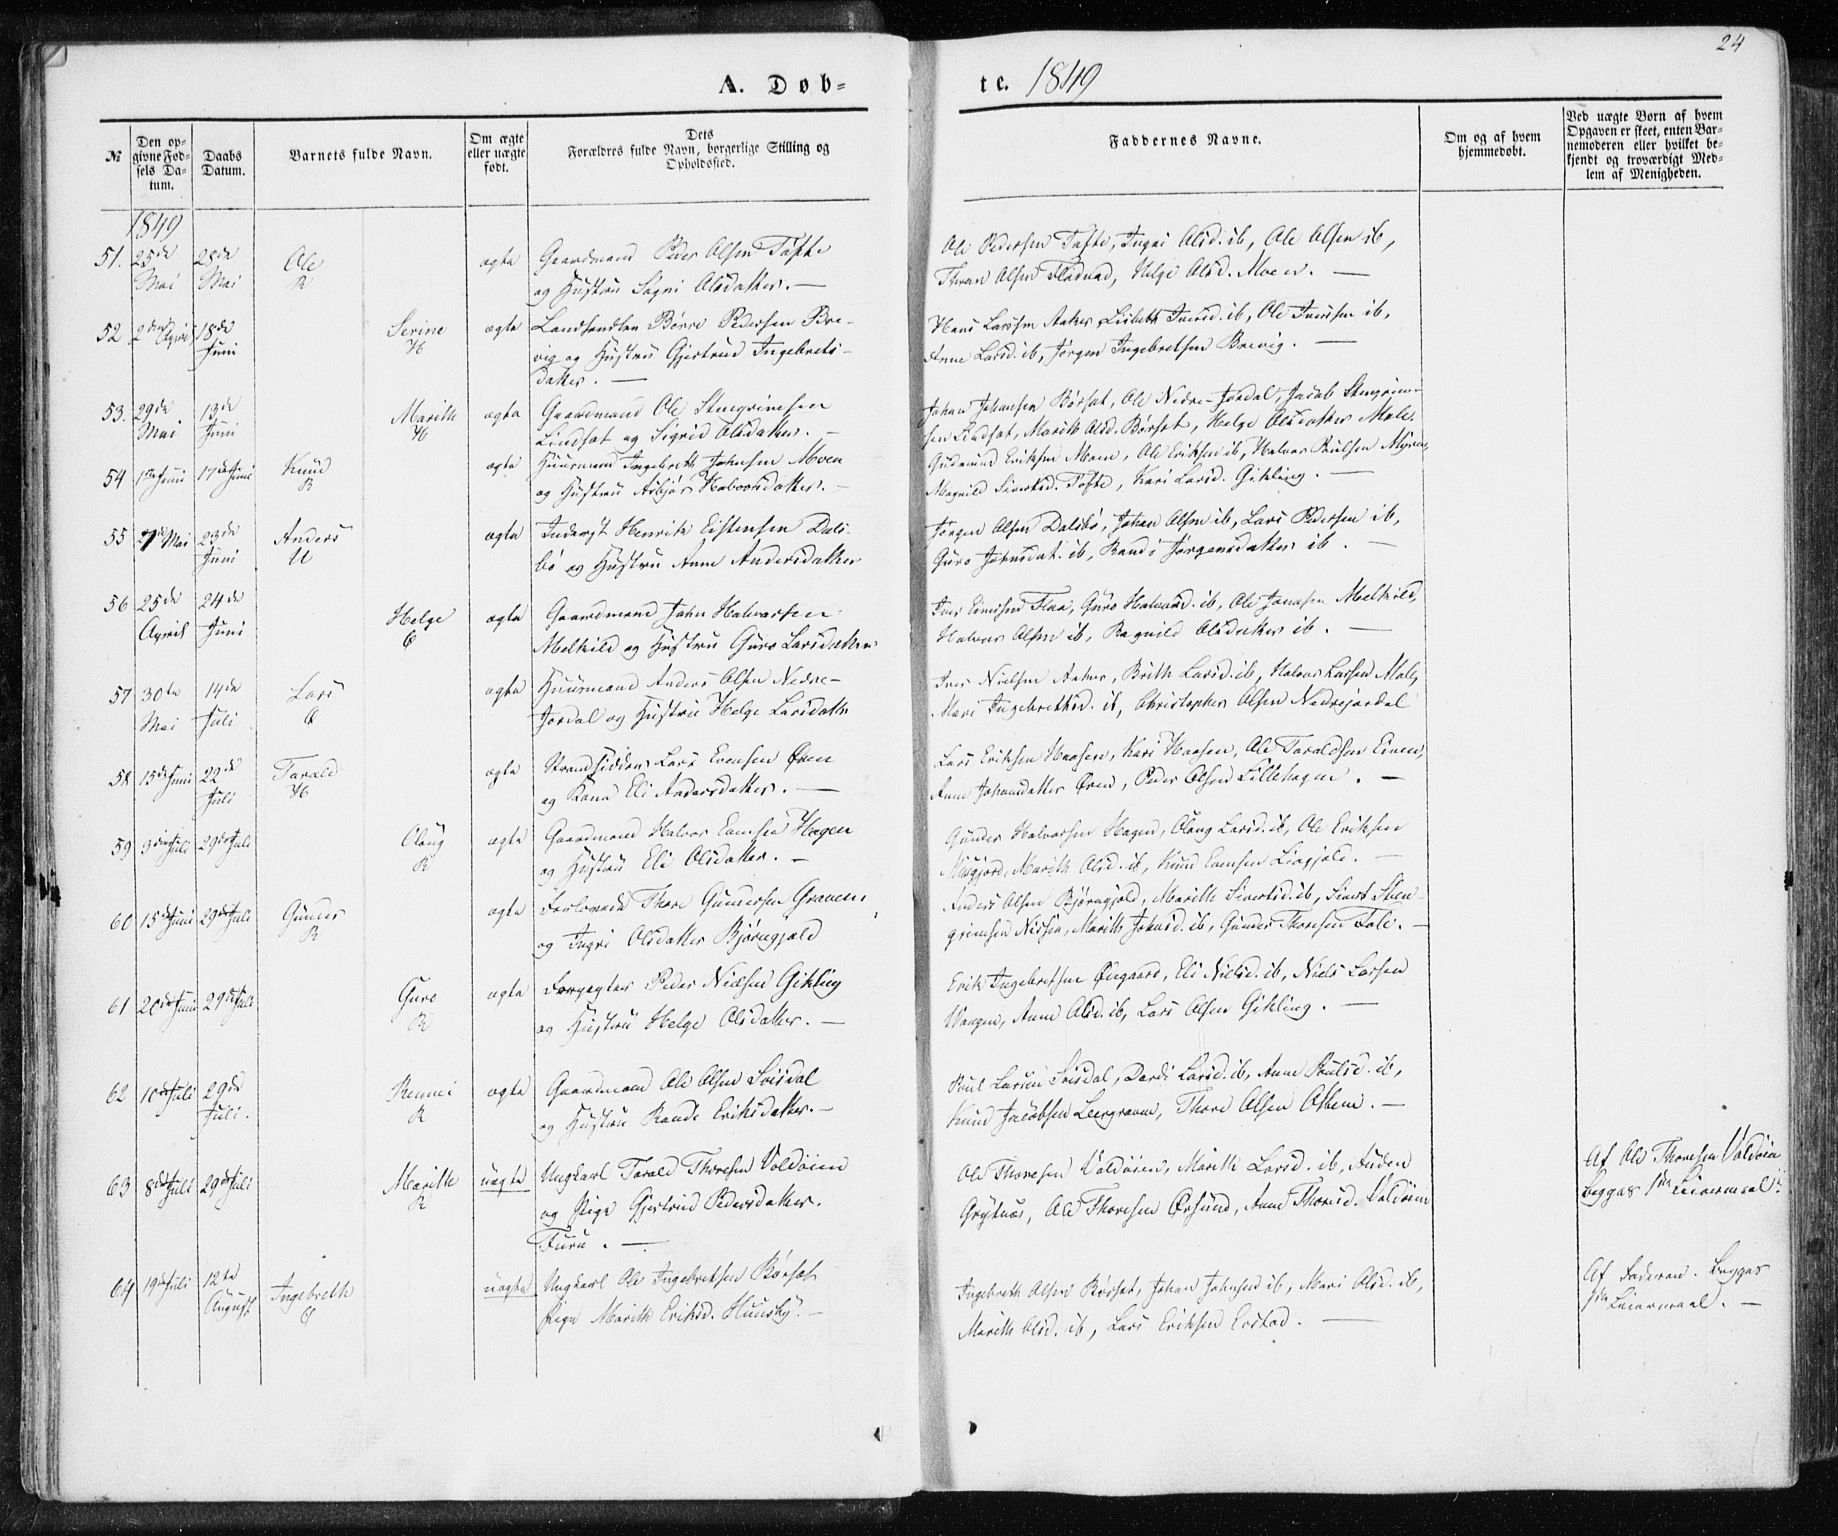 24
A. Døb-
te. 1849
№
Den op-
givne Fød-
sels Da-
tum.
Daabs
Datum.
Barnets fulde Navn.
Om ægte
eller uægte
født.
Dets
Forældres fulde Navn, borgerlige Stilling og
Opholdssted.
Faddernes Navne.
Om og af hvem
hjemmedøbt.
Ved uægte Børn af hvem
Opgaven er skeet, enten Bar-
nemoderen eller hvilket be-
kjendt og troværdigt Med-
lem af Menigheden.
1849
51. 25de Mai 28de Mai Ole R ægte Gaardmand Peder Olsen Tofte
og Hustru Olsdatter. —
Ole Pedersen Tofte, Ingri Olsd. ib, Ole Olsen ib,
Olsen, Helge Olsd. Moen. —
52 2den April 18de Juni Serine H ægte Landhandler Børre Pedersen Bre-
vig og Hustru Gjertrud Ingebrets-
datter. —
Hans Larssen Aaker, Lisbeth ib, Ole ib,
Anne Larsd. ib, Jørgen Ingebretsen Brevig. —
53. 29de Mai 13de Juni Marith H ægte Gaardmand Ole Steengrimsen
Lindset og Sigrid Olsdatter. —
Johan Johansen Børset, Ole Nedre-Jordal, Jacob Steengrim-
sen Lindset, Marith Olsd. Børset, Helge Olsdatter Male.
54 1ste Juni 17de Juni Knud R ægte Huusmand Ingebreth Johnsen Moen
og Hustru Asbjør Halvorsdatter. —
Gudmund Eriksen Moen, Ole Eriksen ib, Halvor Poulsen Myren,
Magnild Sivertsd. Tofte, Kari Larsd. Gikling. —
55 Mai 23de Juni Anders U ægte Inderst Henrik Eistensen Dals-
bø og Hustru Anne Andersdatter
Jørgen Olsen Dalsbø, Johan Olsen ib, Lars Pedersen ib,
Guro Johnsdat. ib, Randi Jørgensdatter ib. —
56 25de April 24de Juni Helge O ægte Gaardmand John Halvorsen
Melkild og Hustru Guro Larsdatter
Iver Flaa, Guro Halvorsd. ib, Ole Jonassen Melkild,
Halvor Olsen ib, Ragnild Olsdatter ib. —
57 30te Mai 14de Juli Lars O ægte Huusmand Anders Olsen Nedre-
Jordal og Hustru Helge Larsdatter
Iver Nielsen Aaker, Brith Larsd. ib, Halvor Larsen Male,
Mari Ingebrethsd. ib, Christopher Olsen Nedrejordal
58 15de Juni 22de Juli Tarald H ægte Strandsidder Lars Evensen Øren
og Kone Eli Andersdatter. —
Lars Eriksen Haasen, Kari Haasen, Ole Taraldsen,
Anne Johansdatter Øren, Peder Olsen Lillehagen. —
59 3die Juli 29de Juli Olaug R ægte Gaardmand Halvor Evensen Hagen
og Hustru Eli Olsdatter. —
Gunder Halvorsen Hagen, Olaug Larsd. ib, Ole Eriksen
Musgjerd, Marith Olsd. ib, Knud Evensen. —
60 15de Juni 29de Juli Gunder R ægte Forlovede Thore Gundersen Graven
og Ingri Olsdatter Bjørngjeld
Anders Olsen Bjørngjeld, Marith Sivertsd. ib, Sivert Steen-
grimsen, Marith Johnsd. ib, Gunder Thoresen Fale. —
61 20de Juni 29de Juli Guro R ægte Forpagter Peder Nielsen Gikling
og Hustru Helge Olsdatter. —
Erik Ingebretsen Øvgaard, Eli Nielsd. ib, Niels Larsen
Vangen, Anne Olsd. ib, Lars Olsen Gikling. —
62 10de Juli 29de Juli. Rennei R ægte Gaardmand Ole Olsen Svisdal
og Hustru Randi Eriksdatter. —
Poul Larsen Svisdal, Dordi Larsd. ib, Anne Poulsd. ib,
Knud Jacobsen Leergraven, Thore Olsen. —
63 8de Juli 29de Juli Marith R uægte Ungkarl Tarald Thoresen Voldøien
og Pige Gjertrud Pedersdatter.
Furu. —
Ole Thoresen Voldøien, Marith Larsd. ib, Auden
Grytnæs, Ole Thoresen Ørsund, Anne Thoresd. Voldøien
Af Ole Thoresen Voldøien
Begges 1ste Leiermaal.
64 19de Juli 12te August Ingebreth O uægte Ungkarl Ole Ingebretsen Børset
Pige Marith Eriksd. Huusby. —
Ingebreth Olsen Børset, Johan Johnsen ib, Mari Olsd. ib,
Marith Olsd. ib, Lars Eriksen Erstad. —
Af Faderen. Begges
1ste Leiermaal. —